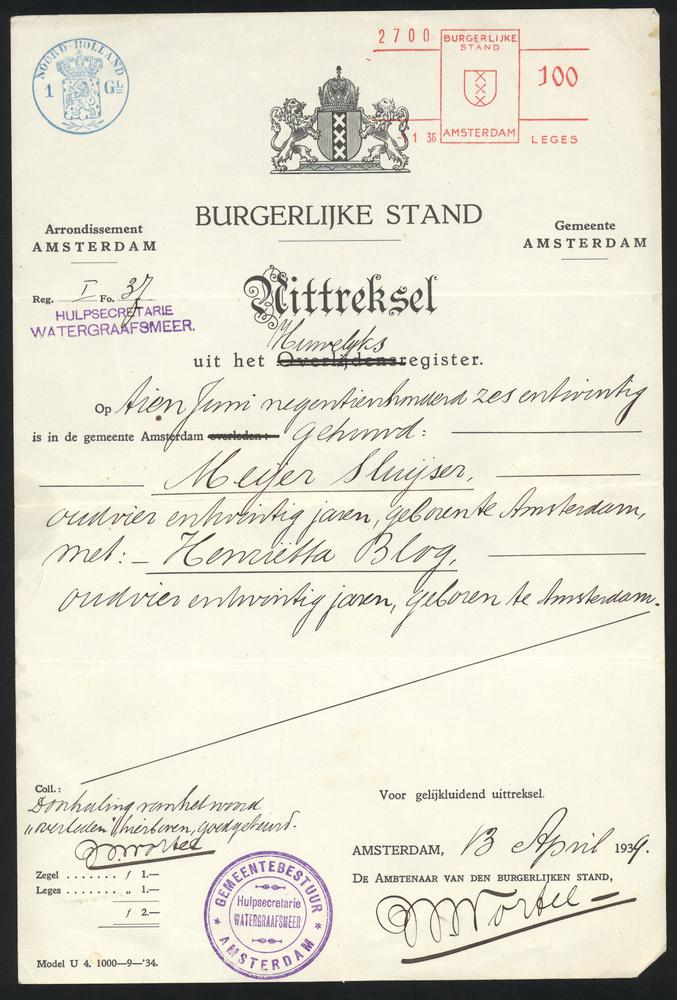 NOORD-HOLLAND
1 GLD
2700
BURGERLIJKE
STAND
100
1 36
AMSTERDAM
LEGES
BURGERLIJKE STAND
Arrondissement
AMSTERDAM
Gemeente
AMSTERDAM
Reg. I Fo. 37
HULPSECRETARIE
WATERGRAAFSMEER.
Uittreksel
Huwelijks
uit het Overlijdensregister.
Op tien Juni negentienhonderd zes en twintig
is in de gemeente Amsterdam overleden: gehuwd:
Meijer Sluijser,
oud vier en twintig jaren, geboren te Amsterdam,
met: Henriëtta Blog,
oud vier en twintig jaren, geboren te Amsterdam.
Coll.:
Doorhaling van het woord
"overleden" hierboven, goedgekeurd.
Wortel
Zegel ....... ƒ 1.—
Leges ....... „ 1.—
ƒ 2.—
Model U 4. 1000—9—'34.
GEMEENTEBESTUUR
Hulpsecretarie
WATERGRAAFSMEER
AMSTERDAM
Voor gelijkluidend uittreksel.
AMSTERDAM, 13 April 1939.
DE AMBTENAAR VAN DEN BURGERLIJKEN STAND,
Wortel